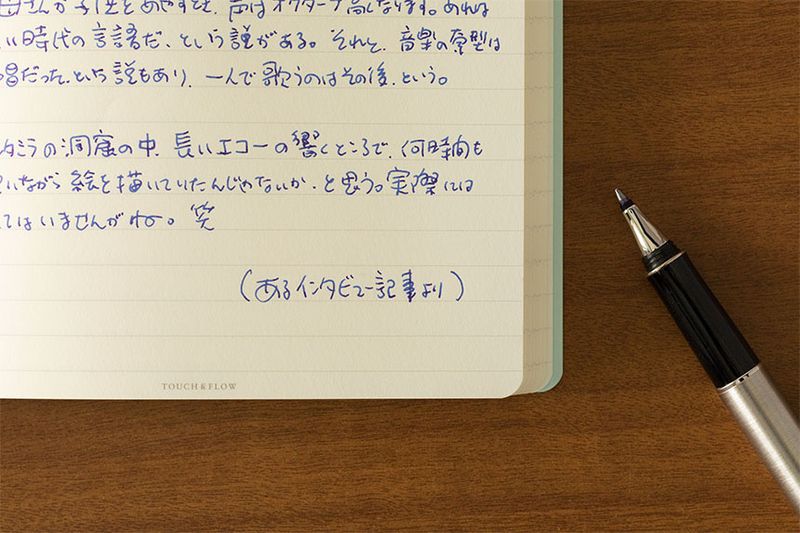 母さんが子供をあやすとき、声はオクターブ高くなります。あれは
い時代の言語だ、という説がある。それと、音楽の原型は
唱だった、という説もあり、一人で歌うのはその後、という。
タミラの洞窟の中、長いエコーの響くところで、何時間も
いながら絵を描いていたんじゃないか、と思う。実際には
てはいませんがね。笑
(あるインタビュー記事より)
TOUCH & FLOW